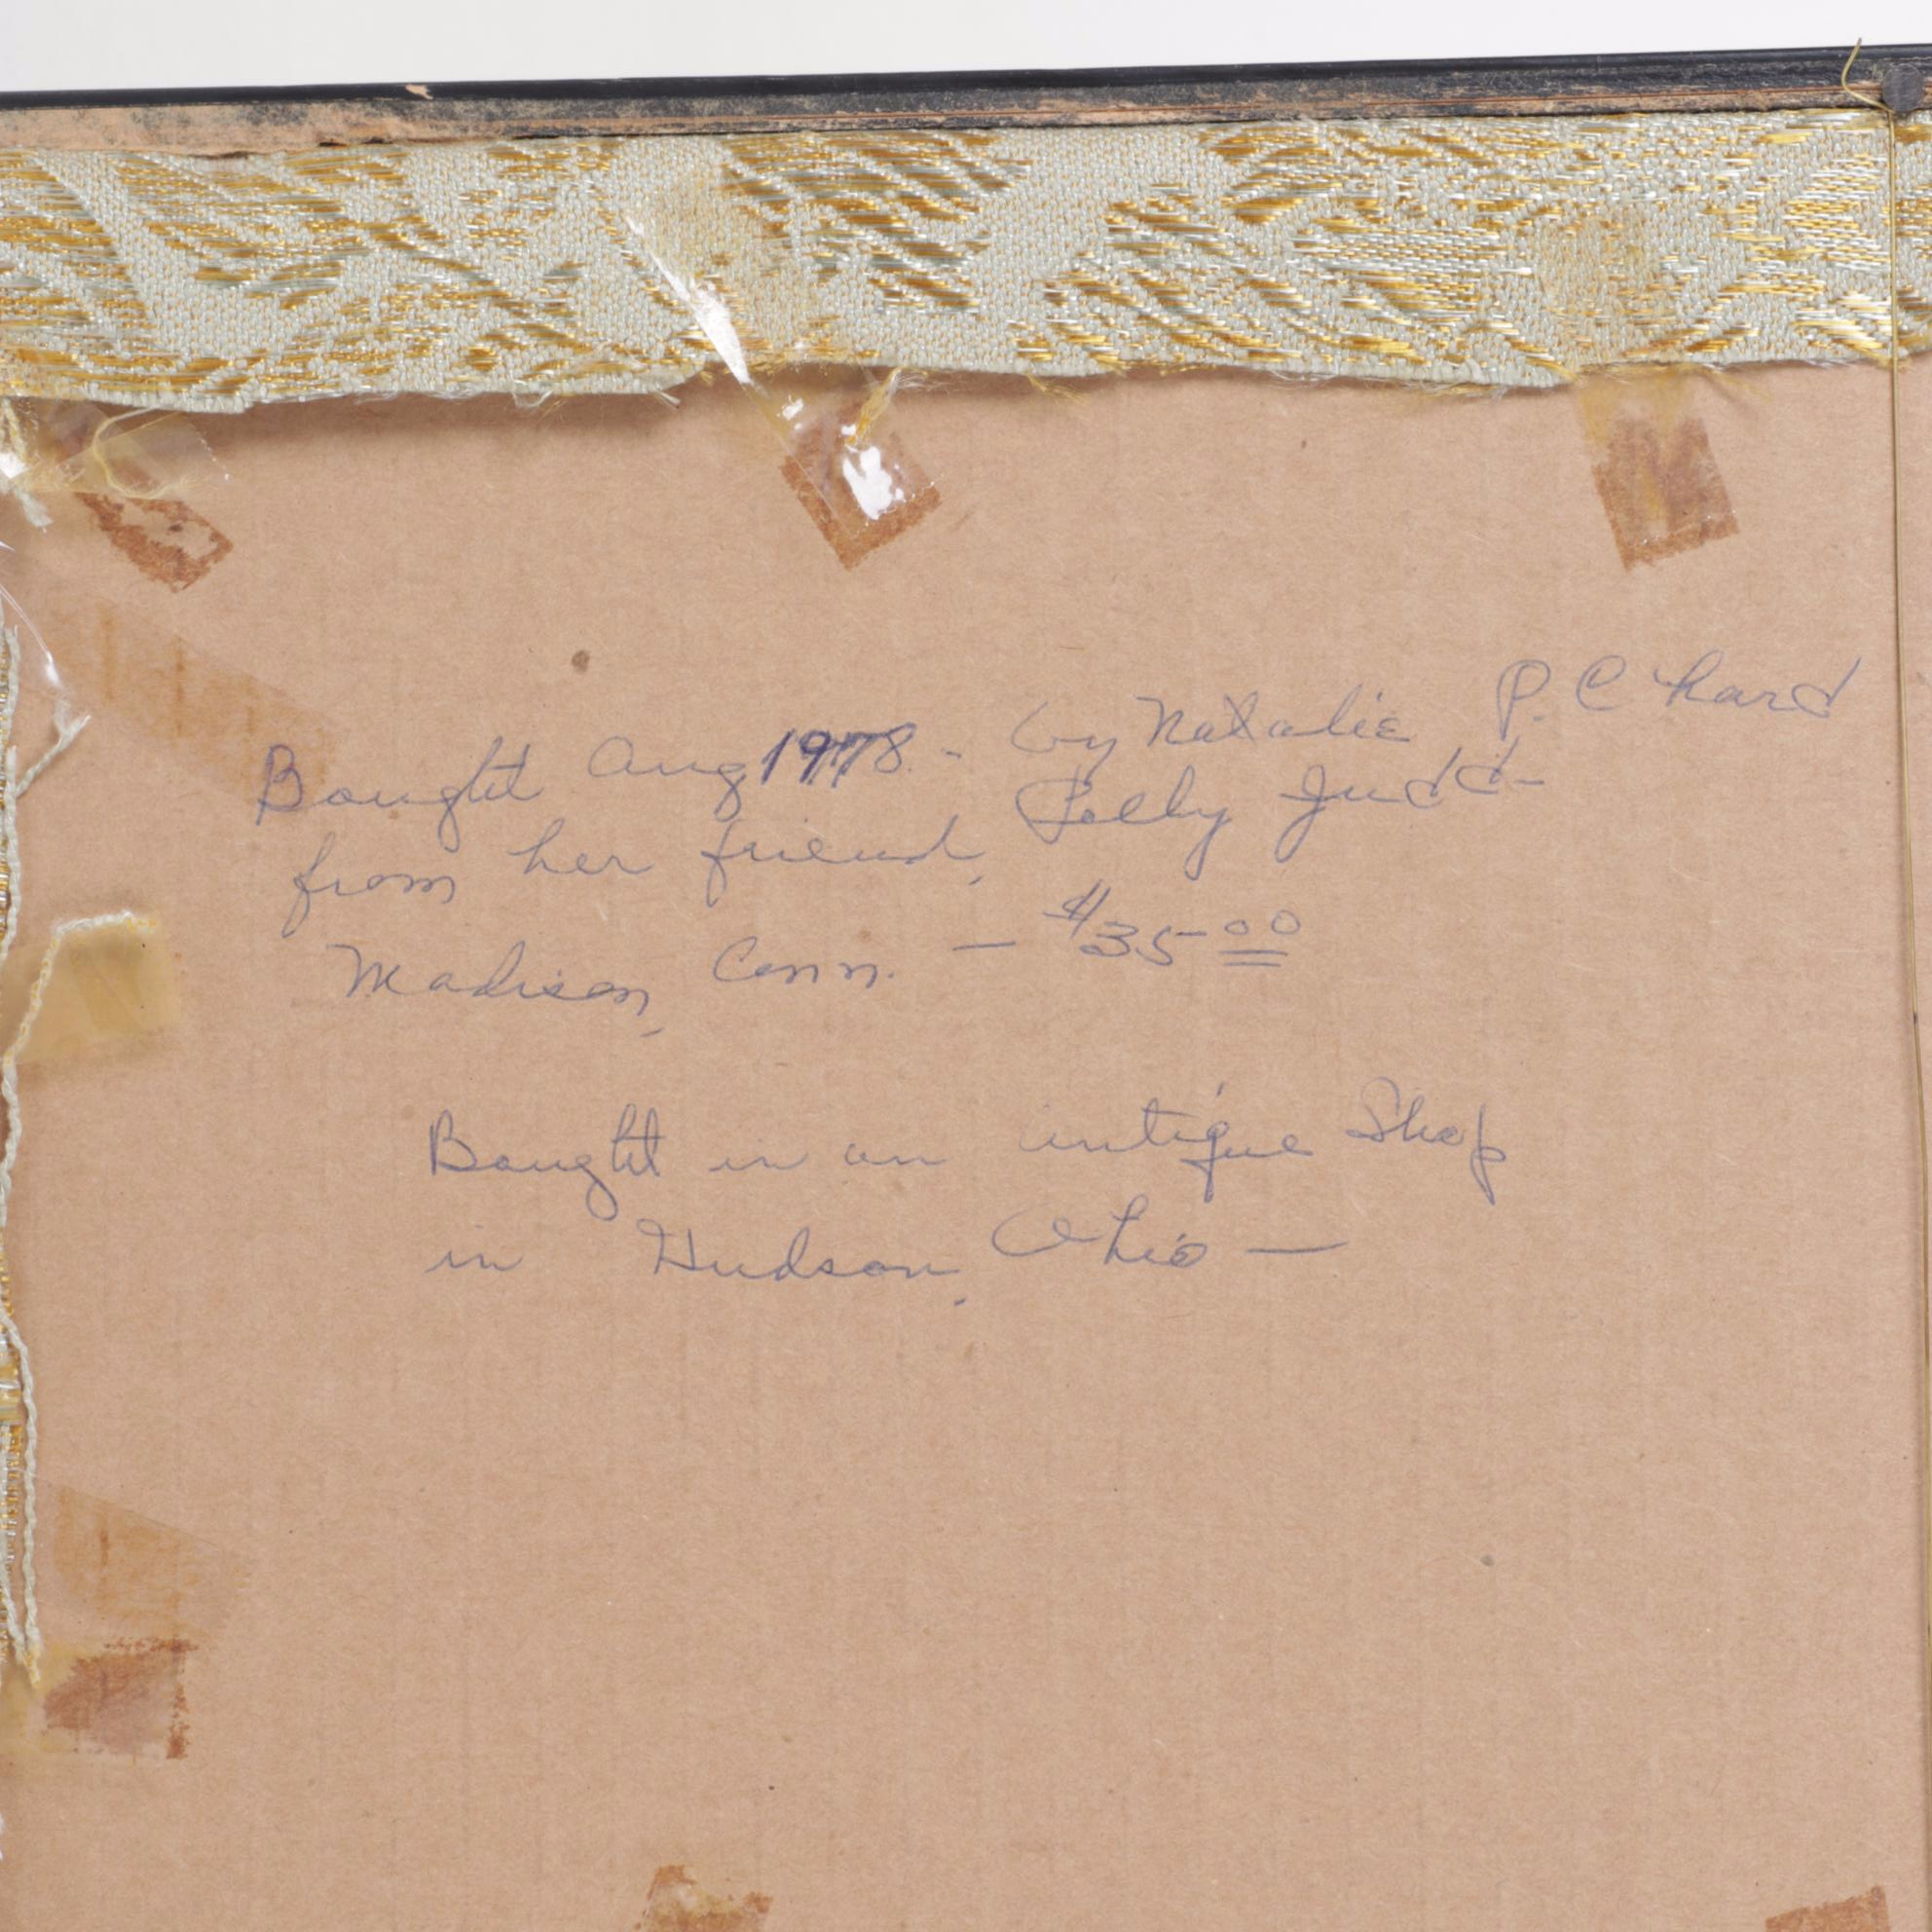 Bought Aug 1978. - by Natalie P. Chard
from her friend, Polly Judd -
Madison, Conn. — $35 00
Bought in an antique Shop
in Hudson, Ohio —